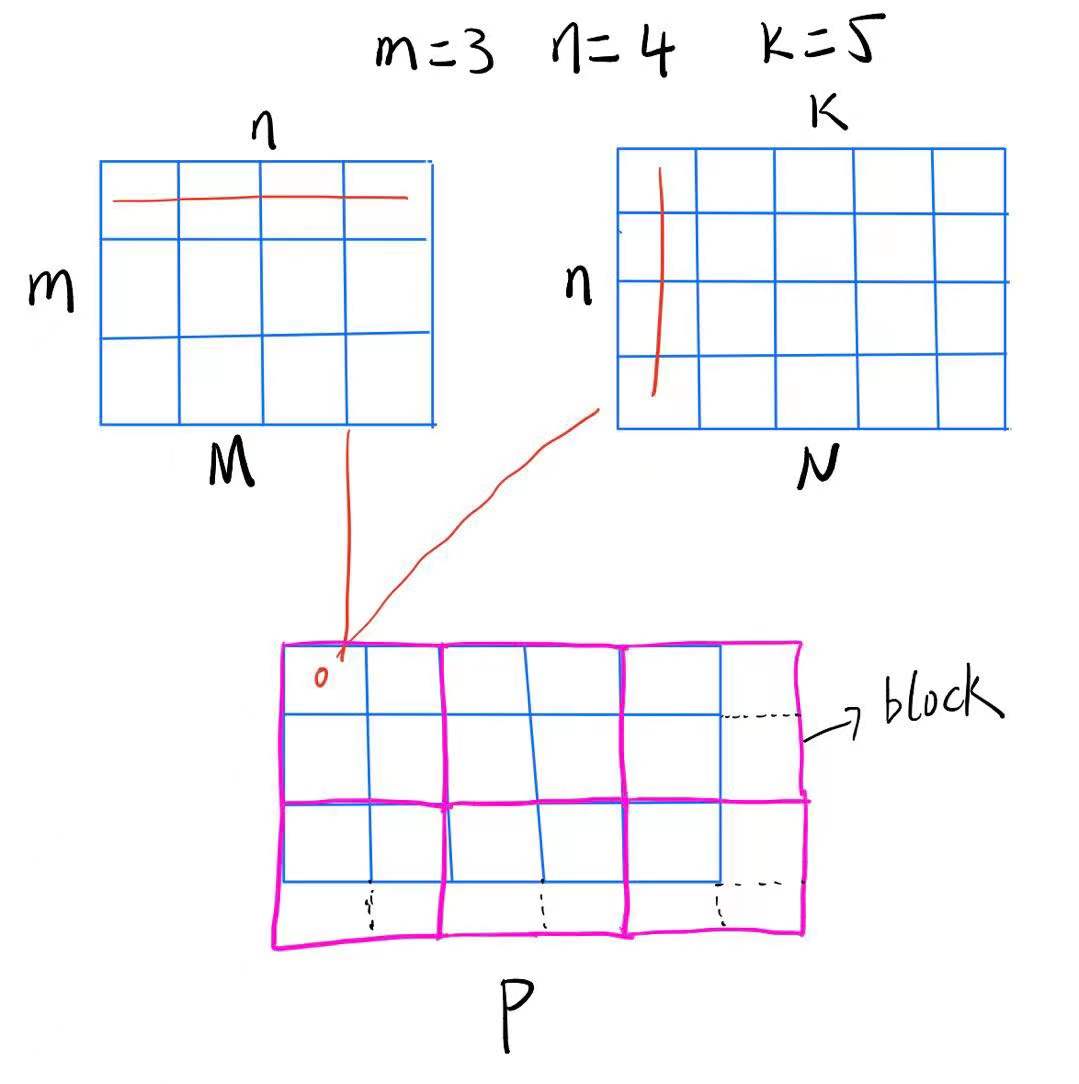 m=3 n=4 k=5
n
K
m
n
M
N
0
block
P